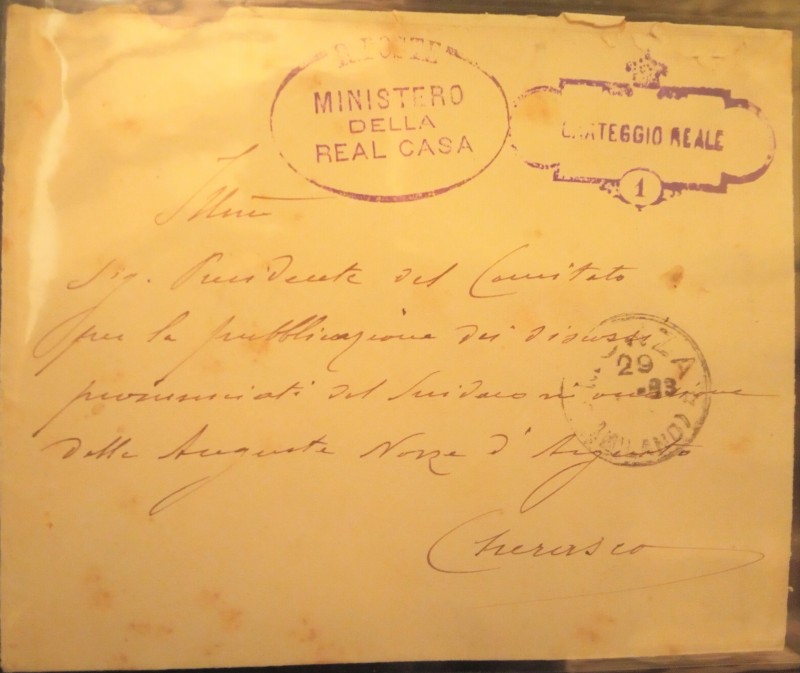 R. POSTE
MINISTERO
DELLA
REAL CASA
CARTEGGIO REALE
1
Sig. Presidente del Comitato
per la pubblicazione dei discorsi
pronunciati dal Sindaco in occasione
delle Auguste Nozze d'Argento
Cherasco
MONZA
29
93
(MILANO)